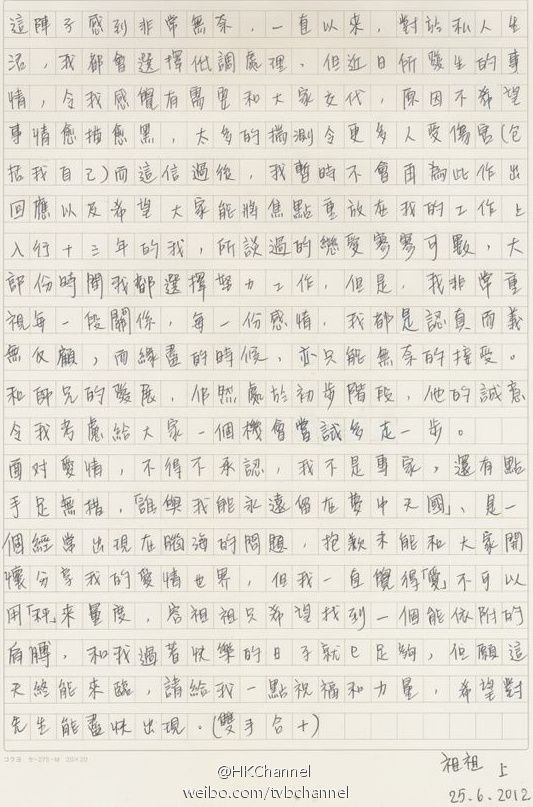 這陣子感到非常無奈，一直以來，對於私人生
活，我都會選擇低調處理，但近日所發生的事
情，令我感覺有需要和大家交代，原因不希望
事情愈描愈黑，太多的揣測令更多人受傷害(包
括我自己)而這信過後，我暫時不會再為此作出
回應以及希望大家能將焦點重放在我的工作上
入行十三年的我，所談過的戀愛寥寥可數，大
部份時間我都選擇努力工作，但是，我非常重
視每一段關係，每一份感情，我都是認真而義
無反顧，而緣盡的時候，亦只能無奈的接受。
和師兄的發展，仍然處於初步階段，他的誠意
令我考慮給大家一個機會嘗試多走一步。
面对愛情，不得不承認，我不是專家，還有點
手足無措，「誰與我能永遠留在夢中天國」，是一
個經常出現在腦海的問題，抱歉未能和大家開
懷分享我的愛情世界，但我一直覺得「愛」不可以
用「秤」來量度，容祖祖只希望找到一個能依附的
肩膊，和我過著快樂的日子就已足夠，但願這
天終能來臨，請給我一點祝福和力量，希望對
先生能盡快出現。(雙手合十)
コクヨ ケ-275-N 20×20
祖祖 上
25.6.2012
@HKChannel
weibo.com/tvbchannel